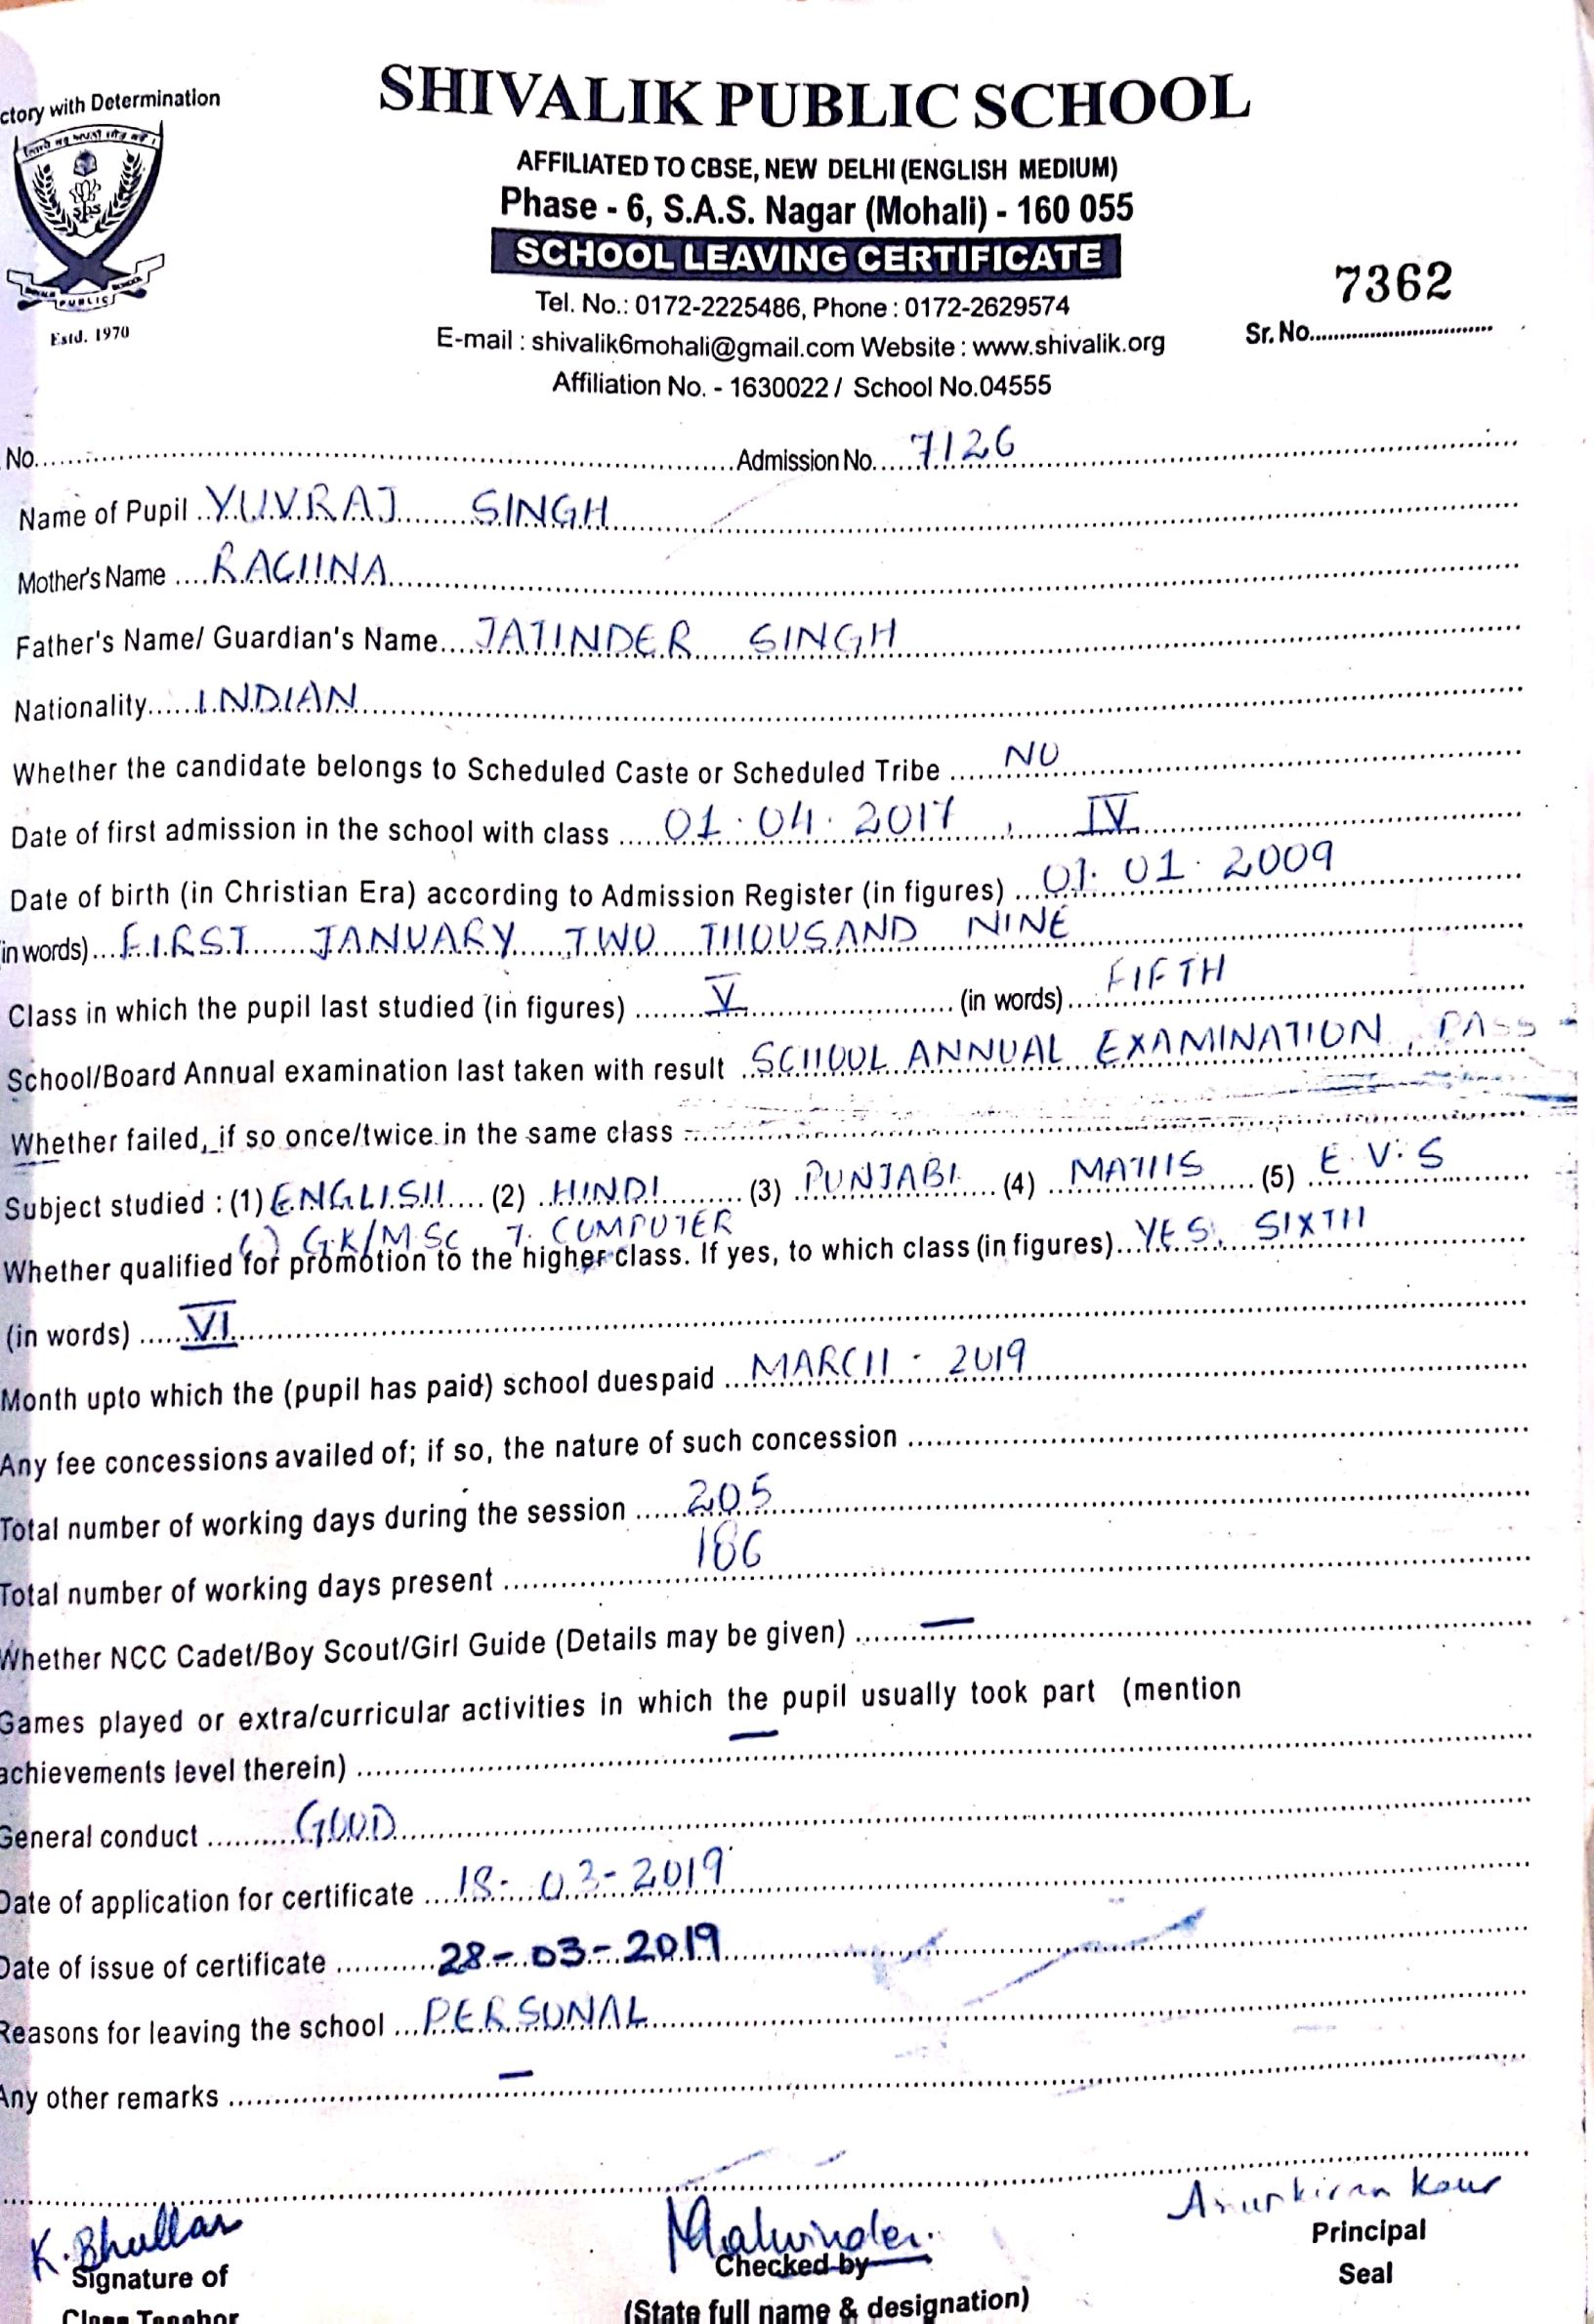 ctory with Determination
SHIVALIK PUBLIC SCHOOL
AFFILIATED TO CBSE, NEW DELHI (ENGLISH MEDIUM)
Phase - 6, S.A.S. Nagar (Mohali) - 160 055
SCHOOL LEAVING CERTIFICATE
PUBLIC SCHOOL
Estd. 1970
Tel. No.: 0172-2225486, Phone : 0172-2629574
7362
E-mail : shivalik6mohali@gmail.com Website : www.shivalik.org
Sr. No.
Affiliation No. - 1630022 / School No.04555
No. Admission No. 7126
Name of Pupil YUVRAJ SINGH
Mother's Name
Father's Name/ Guardian's Name JATINDER SINGH
Nationality INDIAN
Whether the candidate belongs to Scheduled Caste or Scheduled Tribe NO
Date of first admission in the school with class 01.04.2017, IV
Date of birth (in Christian Era) according to Admission Register (in figures) 01.01.2009
in words) FIRST JANUARY TWO THOUSAND NINE
Class in which the pupil last studied (in figures) V (in words) FIFTH
School/Board Annual examination last taken with result SCHOOL ANNUAL EXAMINATION, PASS
Whether failed, if so once/twice in the same class
Subject studied : (1) ENGLISH (2) HINDI (3) PUNJABI (4) MATHS (5) E.V.S
G.K/M.Sc 7. COMPUTER
Whether qualified for promotion to the higher class. If yes, to which class (in figures) YES, SIXTH
(in words) VI
Month upto which the (pupil has paid) school duespaid MARCH - 2019
Any fee concessions availed of; if so, the nature of such concession
Total number of working days during the session 205
Total number of working days present
Whether NCC Cadet/Boy Scout/Girl Guide (Details may be given) —
Games played or extra/curricular activities in which the pupil usually took part (mention
achievements level therein) —
General conduct GOOD
Date of application for certificate 18-03-2019
Date of issue of certificate 28-03-2019
Reasons for leaving the school PERSONAL
Any other remarks —
K. Bhullar
Malwinder
Kaur
Signature of
Class Teacher
Checked by
(State full name & designation)
Principal
Seal